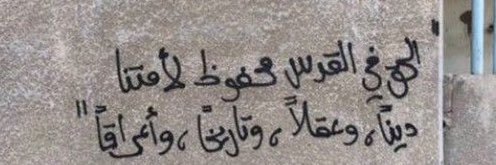 "الحق في القدس محفوظ لأمتنا
ديناً، وعقلاً، وتاريخاً، وأعراقاً"